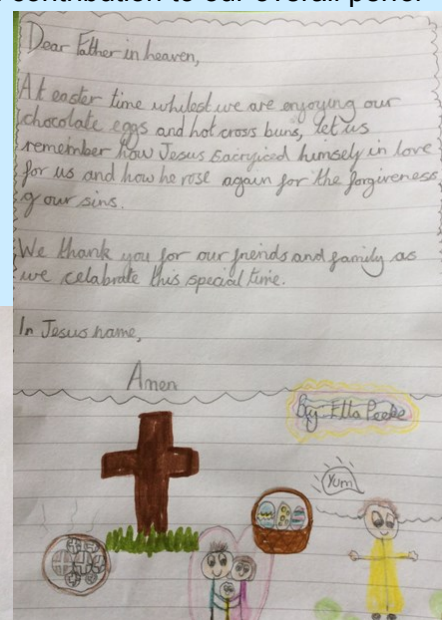 contribution to our overall
Dear Father in heaven,
At easter time whilest we are enjoying our
chocolate eggs and hot cross buns, let us
remember how Jesus sacryficed himself in love
for us and how he rose again for the forgiveness
of our sins.
We thank you for our friends and family as
we celabrate this special time.
In Jesus name,
Amen
By: Etta
Yum